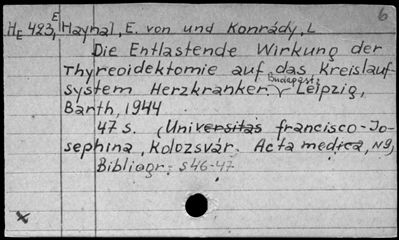 6
HE 423, E Haynal, E. von und Konrády, L
Die Entlastende Wirkung der
Thyreoidektomie auf das Kreislauf-
system Herzkranker. Budapest Leipzig,
Barth, 1944
47 s. (Universitas francisco-Jo-
sephina, Kolozsvár. Acta medica, N9,
Bibliogr: s46-47
x